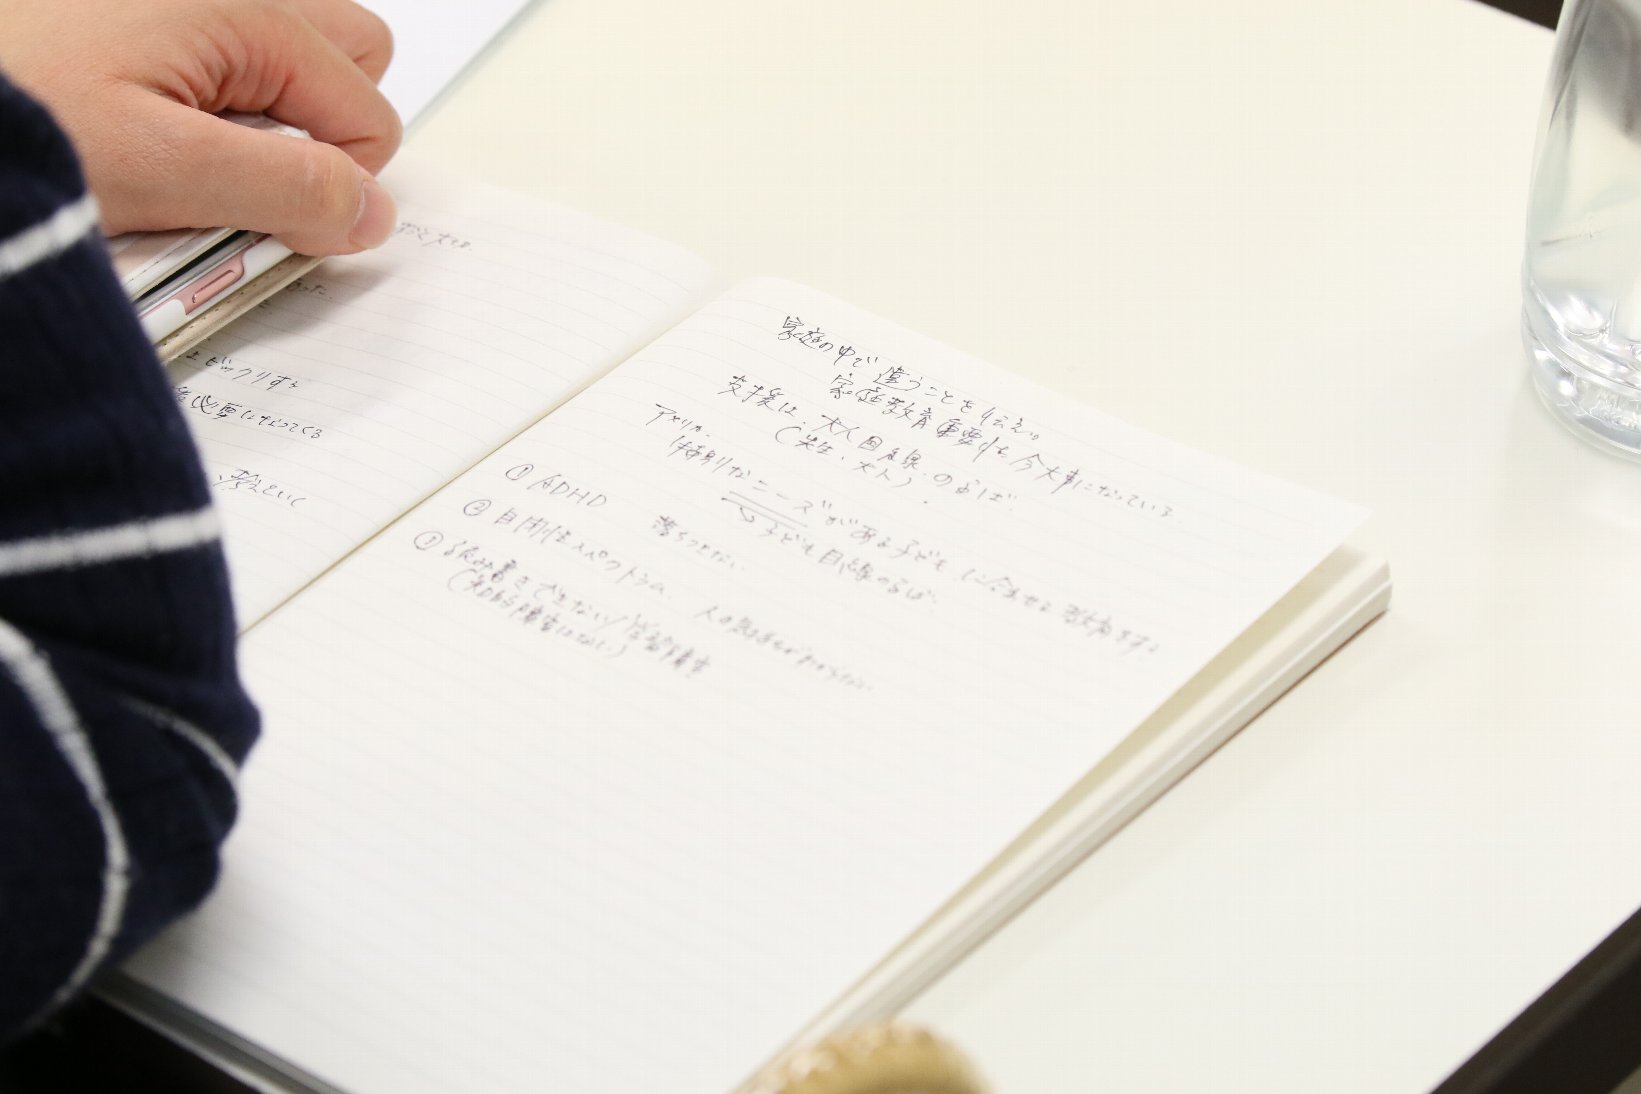 大切.
ビックリする
必要になってくる
考えていく
家庭の中で違うことを伝える。
家庭教育重要性 今大事になっている
支援は、大人目線のことば.
(先生、大人).
アメリカ.
特別なニーズがある子どもに合わせる教育
子ども目線のことば.
① ADHD 落ちつかない.
② 自閉性スペクトラム. 人の気持ちがわからない.
③ 読み書きできない/学習障害
(知的障害はない)